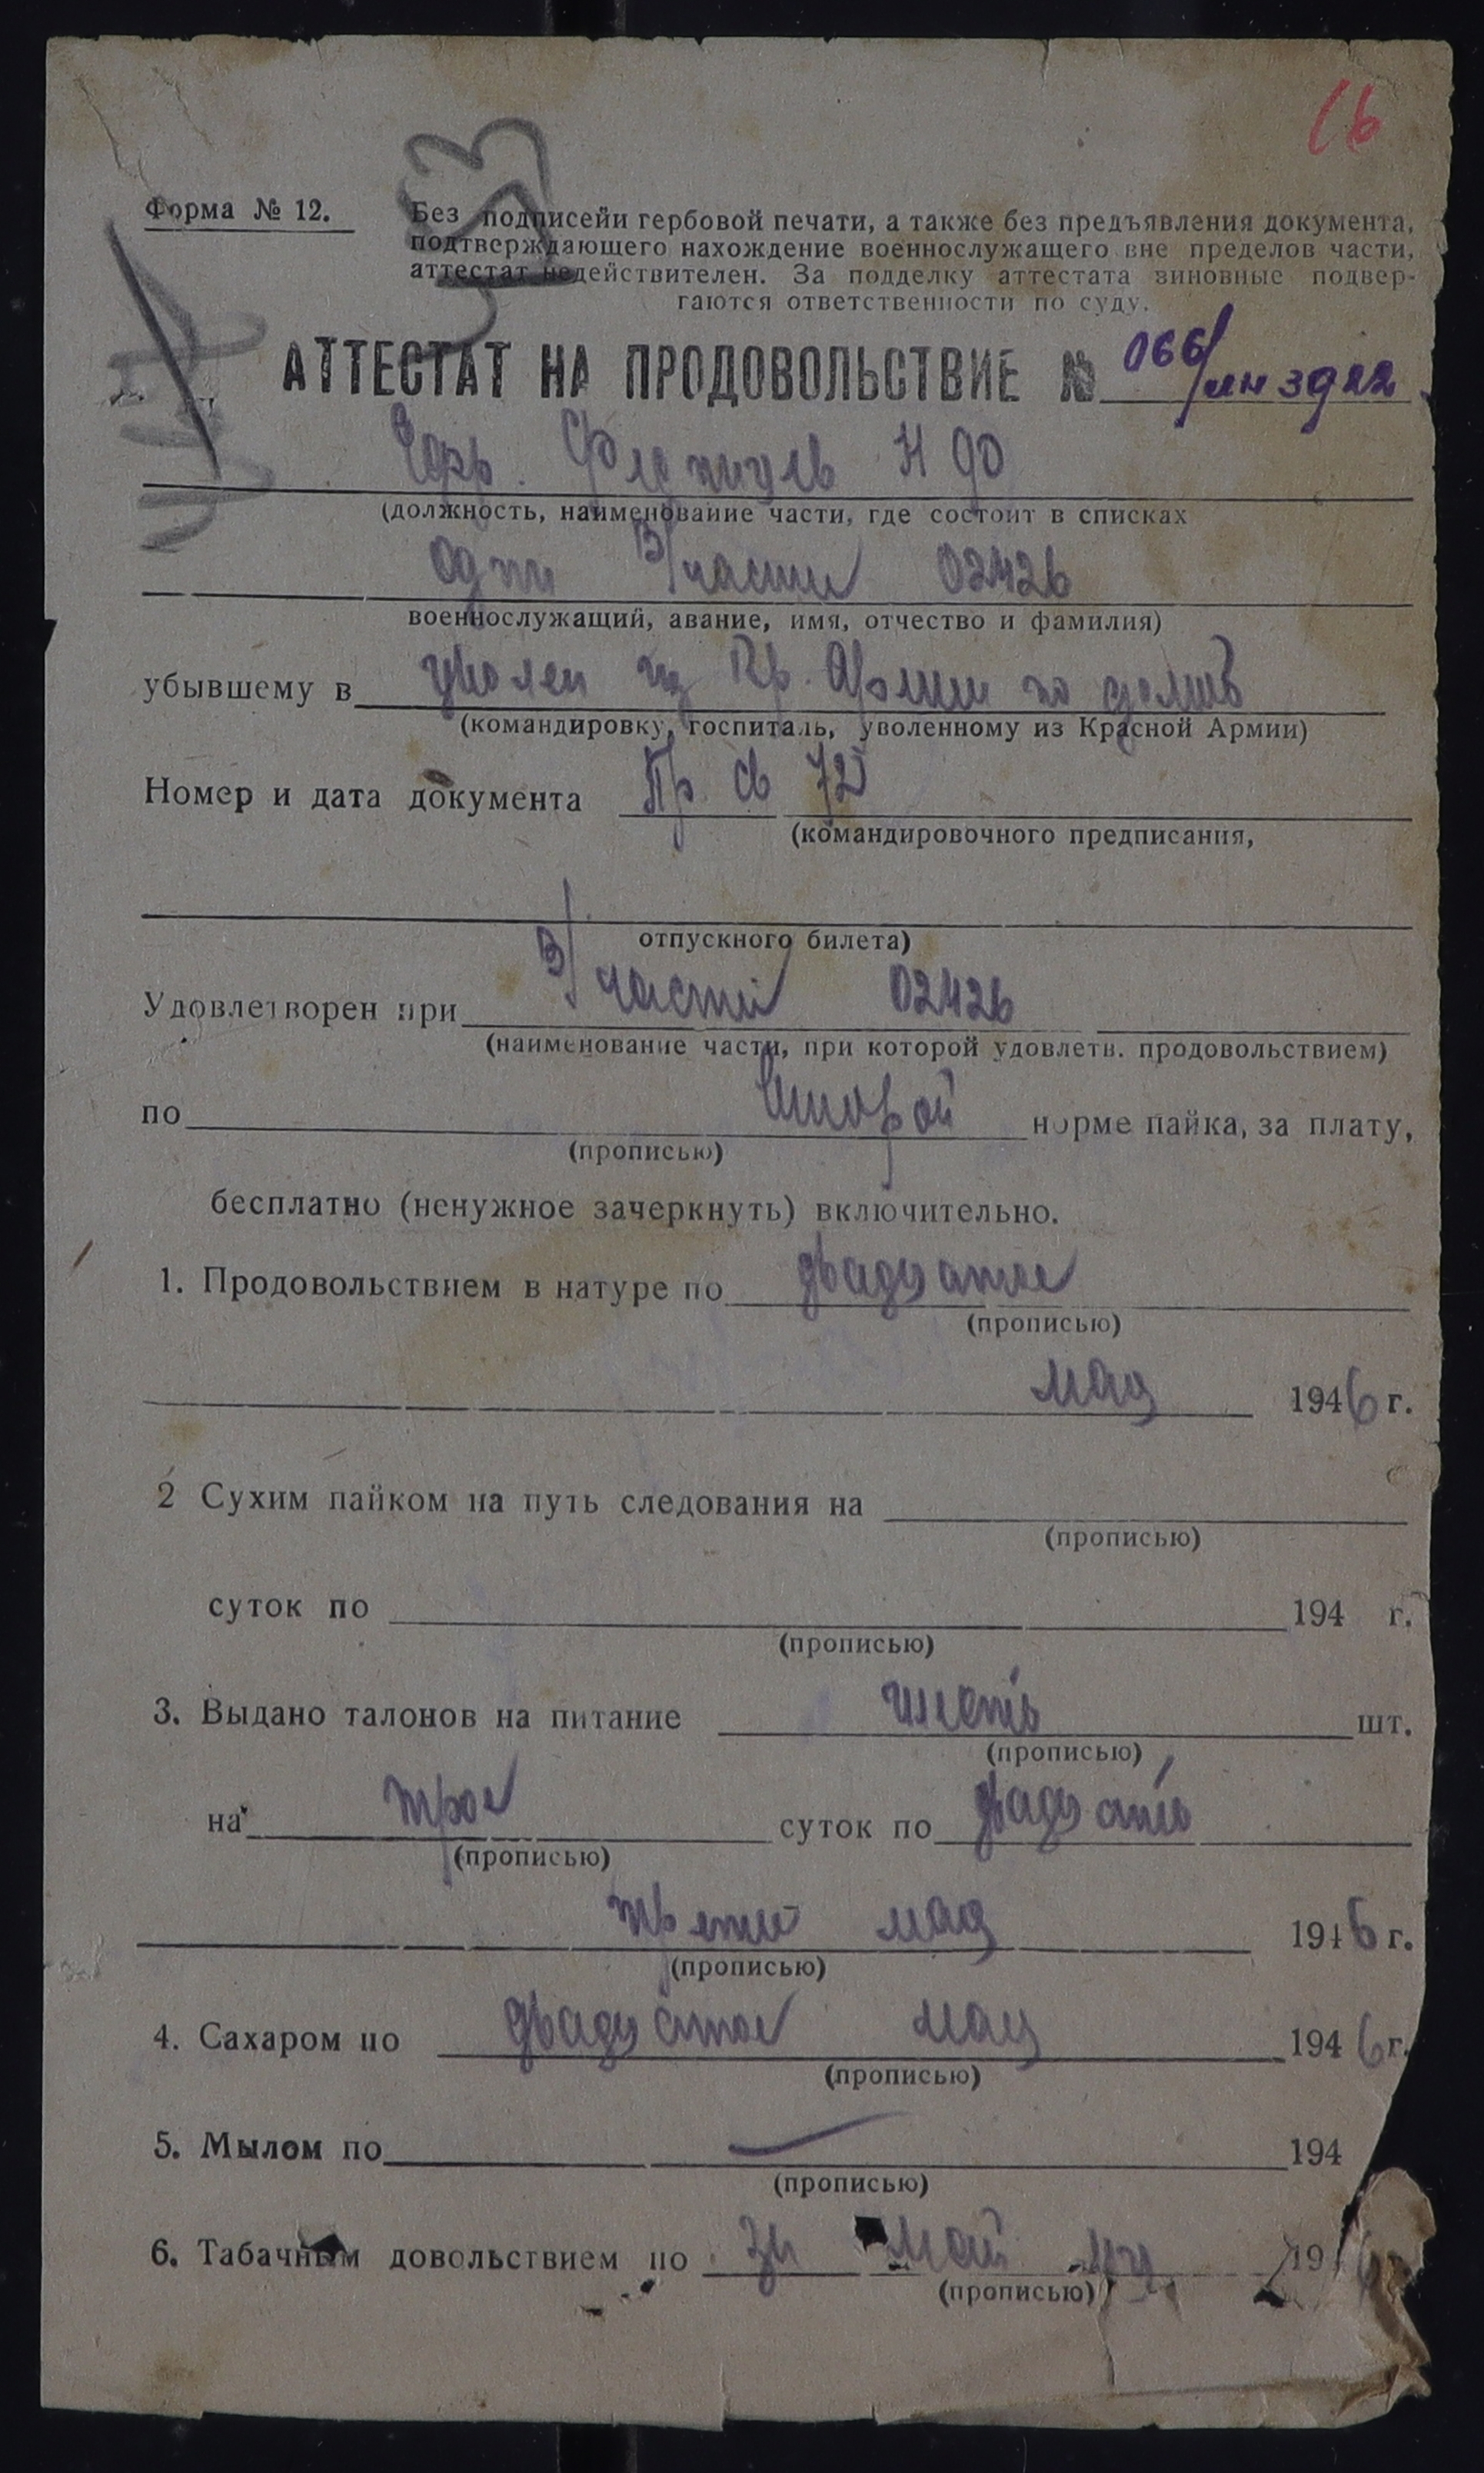 16
Форма № 12.
Без подписейи гербовой печати, а также без предъявления документа,
подтверждающего нахождение военнослужащего вне пределов части,
аттестат недействителен. За подделку аттестата виновные подвер-
гаются ответственности по суду.
АТТЕСТАТ НА ПРОДОВОЛЬСТВИЕ № 066/
Ефр.
(должность, наименование части, где состоит в списках
В/части 02426
военнослужащий, авание, имя, отчество и фамилия)
убывшему в уволен из Кр. Армии по
(командировку, госпиталь, уволенному из Красной Армии)
Номер и дата документа Пр. св 72
(командировочного предписания,
отпускного билета)
Удовлетворен при В/части 02426
(наименование части, при которой удовлетв. продовольствием)
по второй норме пайка, за плату,
(прописью)
бесплатно (ненужное зачеркнуть) включительно.
1. Продовольствием в натуре по двадцатое
(прописью)
мая 1946 г.
2 Сухим пайком на путь следования на
(прописью)
суток по 194 г.
(прописью)
3. Выдано талонов на питание шесть шт.
(прописью)
на трое суток по двадцать
(прописью)
третие мая 1946 г.
(прописью)
4. Сахаром по двадцатое мая 1946 г.
(прописью)
5. Мылом по 194
(прописью)
6. Табачным довольствием по май 19
(прописью)